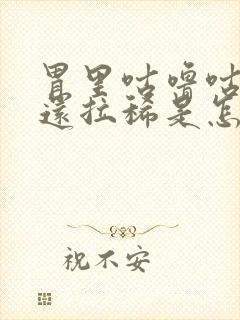 胃里咕噜咕
還拉稀是怎
祝不安